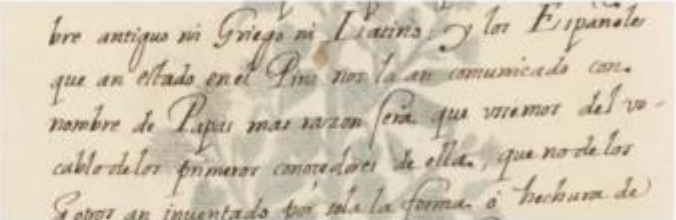 bre antiguo ni Griego ni Latino. y los Españoles
que an estado en el Piru nos la an comunicado con
nombre de Papas mas razon sera que vsemos del vo-
cablo de los primeros conoçedores de ella, que no de los
an inuentado por sola la forma. o hechura de